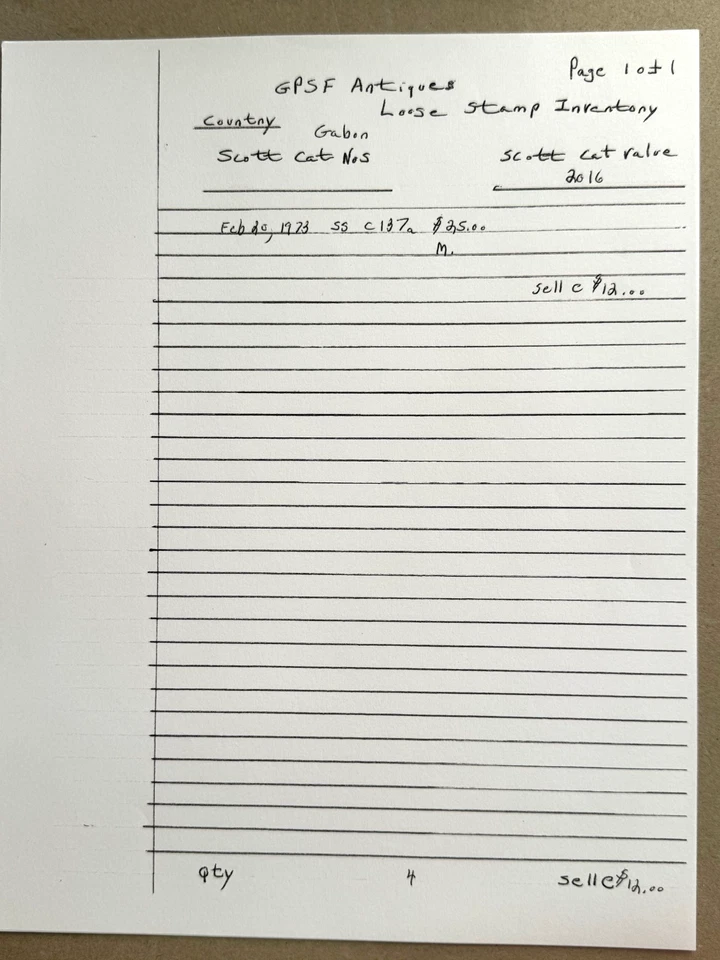 Page 1 of 1
GPSF Antiques
Loose Stamp Inventory
Country
Gabon
Scott Cat Nos
Scott Cat Value
2016
Feb 20, 1973 SS C137a $25.00
M.
Sell @ $12.00
Qty 4 Sell @ $12.00